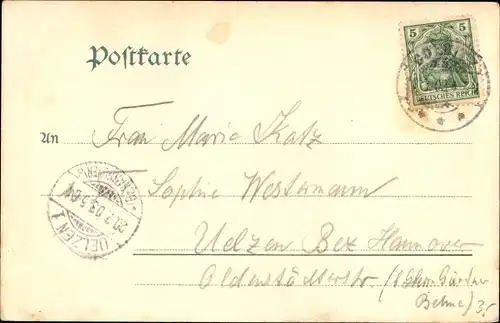 Postkarte
5
DEUTSCHES REICH
An Frau Marie Katz
Sophie Westermann
Uelzen Bez Hannover
Oldenstädterstr (b/
UELZEN 1
20.7.03. 5-6N